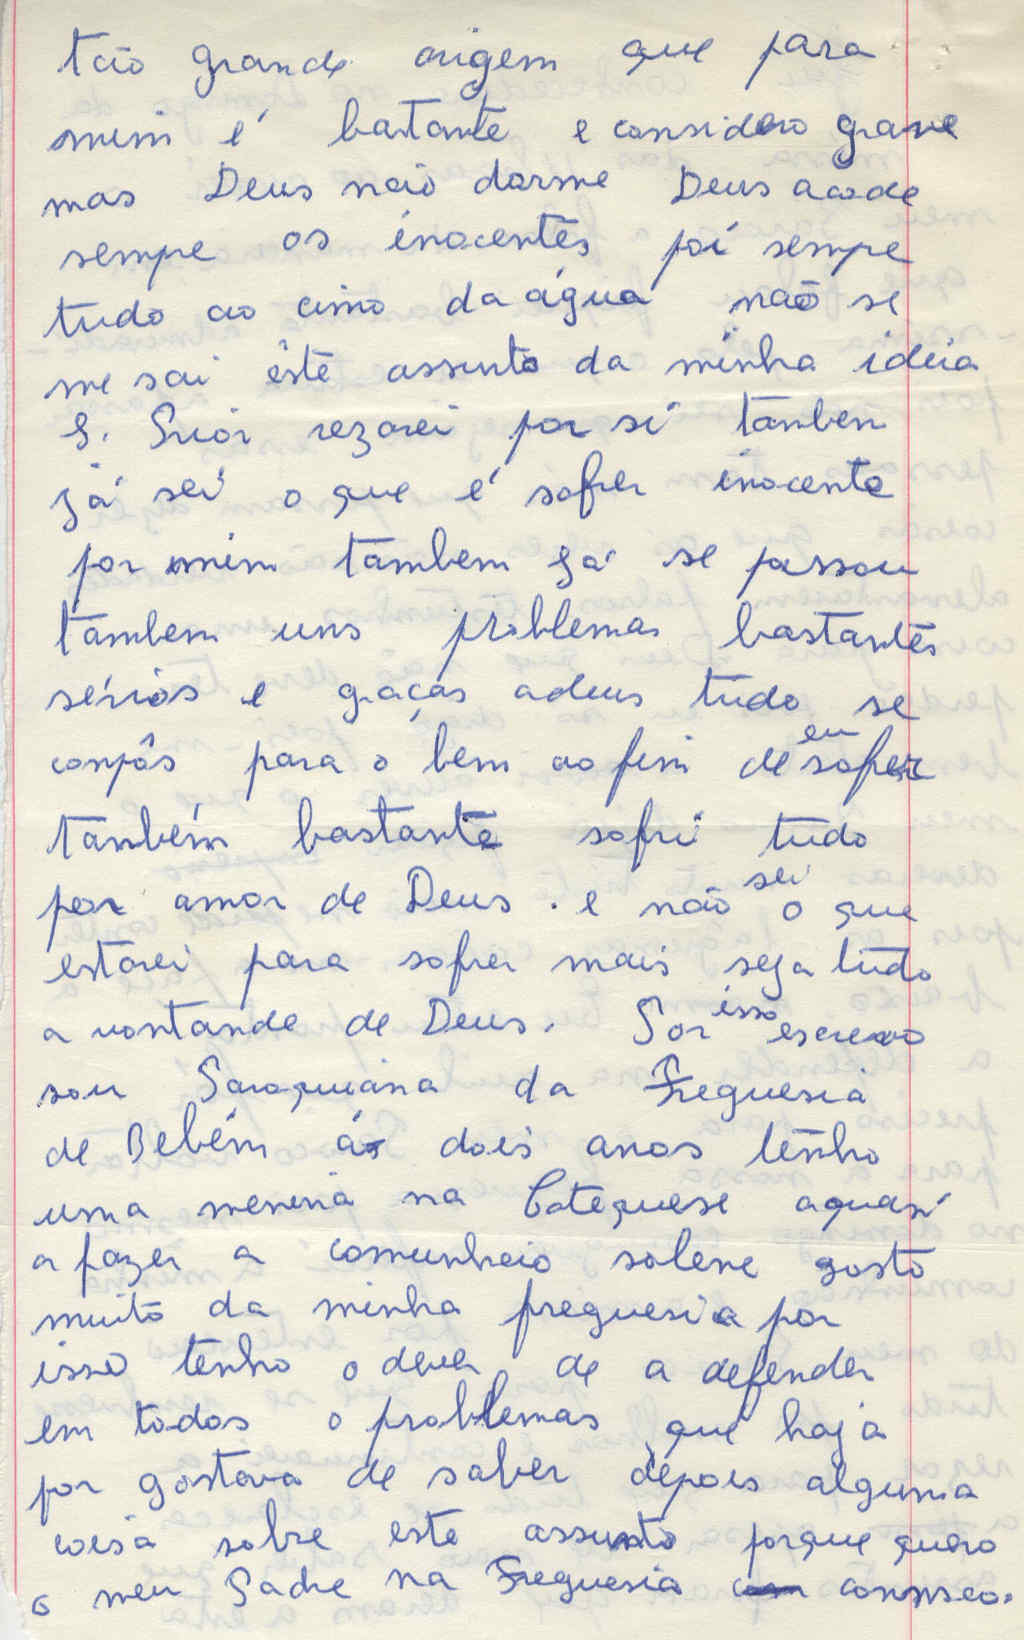 tão grande origem que para
mim é bastante e considero grave
mas Deus não dorme Deus acode
sempe os inocentes foi sempe
tudo ao cimo da água não se
me sai êste assunto da minha ideia
S. Prior rezarei por si tanben
já sei o que é sofrer inocente
por mim tambem já se passou
tambem uns problemas bastantes
sérios e graças adeus tudo se
conpôs para o bem ao fim de eu sofrer
também bastante sofri tudo
por amor de Deus. e não sei o que
estarei para sofrer mais seja tudo
a vontande de Deus. Por isso escrevo
sou Paroquiana da Freguesia
de Belém ás dois anos tenho
uma menina na Catequese aquasi
a fazer a comunhão solene gosto
muito da minha freguesia por
isso tenho o dever de a defender
em todos o problemas que haja
por gostava de saber depois alguma
coisa sobre este assunto porque quero
o meu Padre na Freguesia connsco.